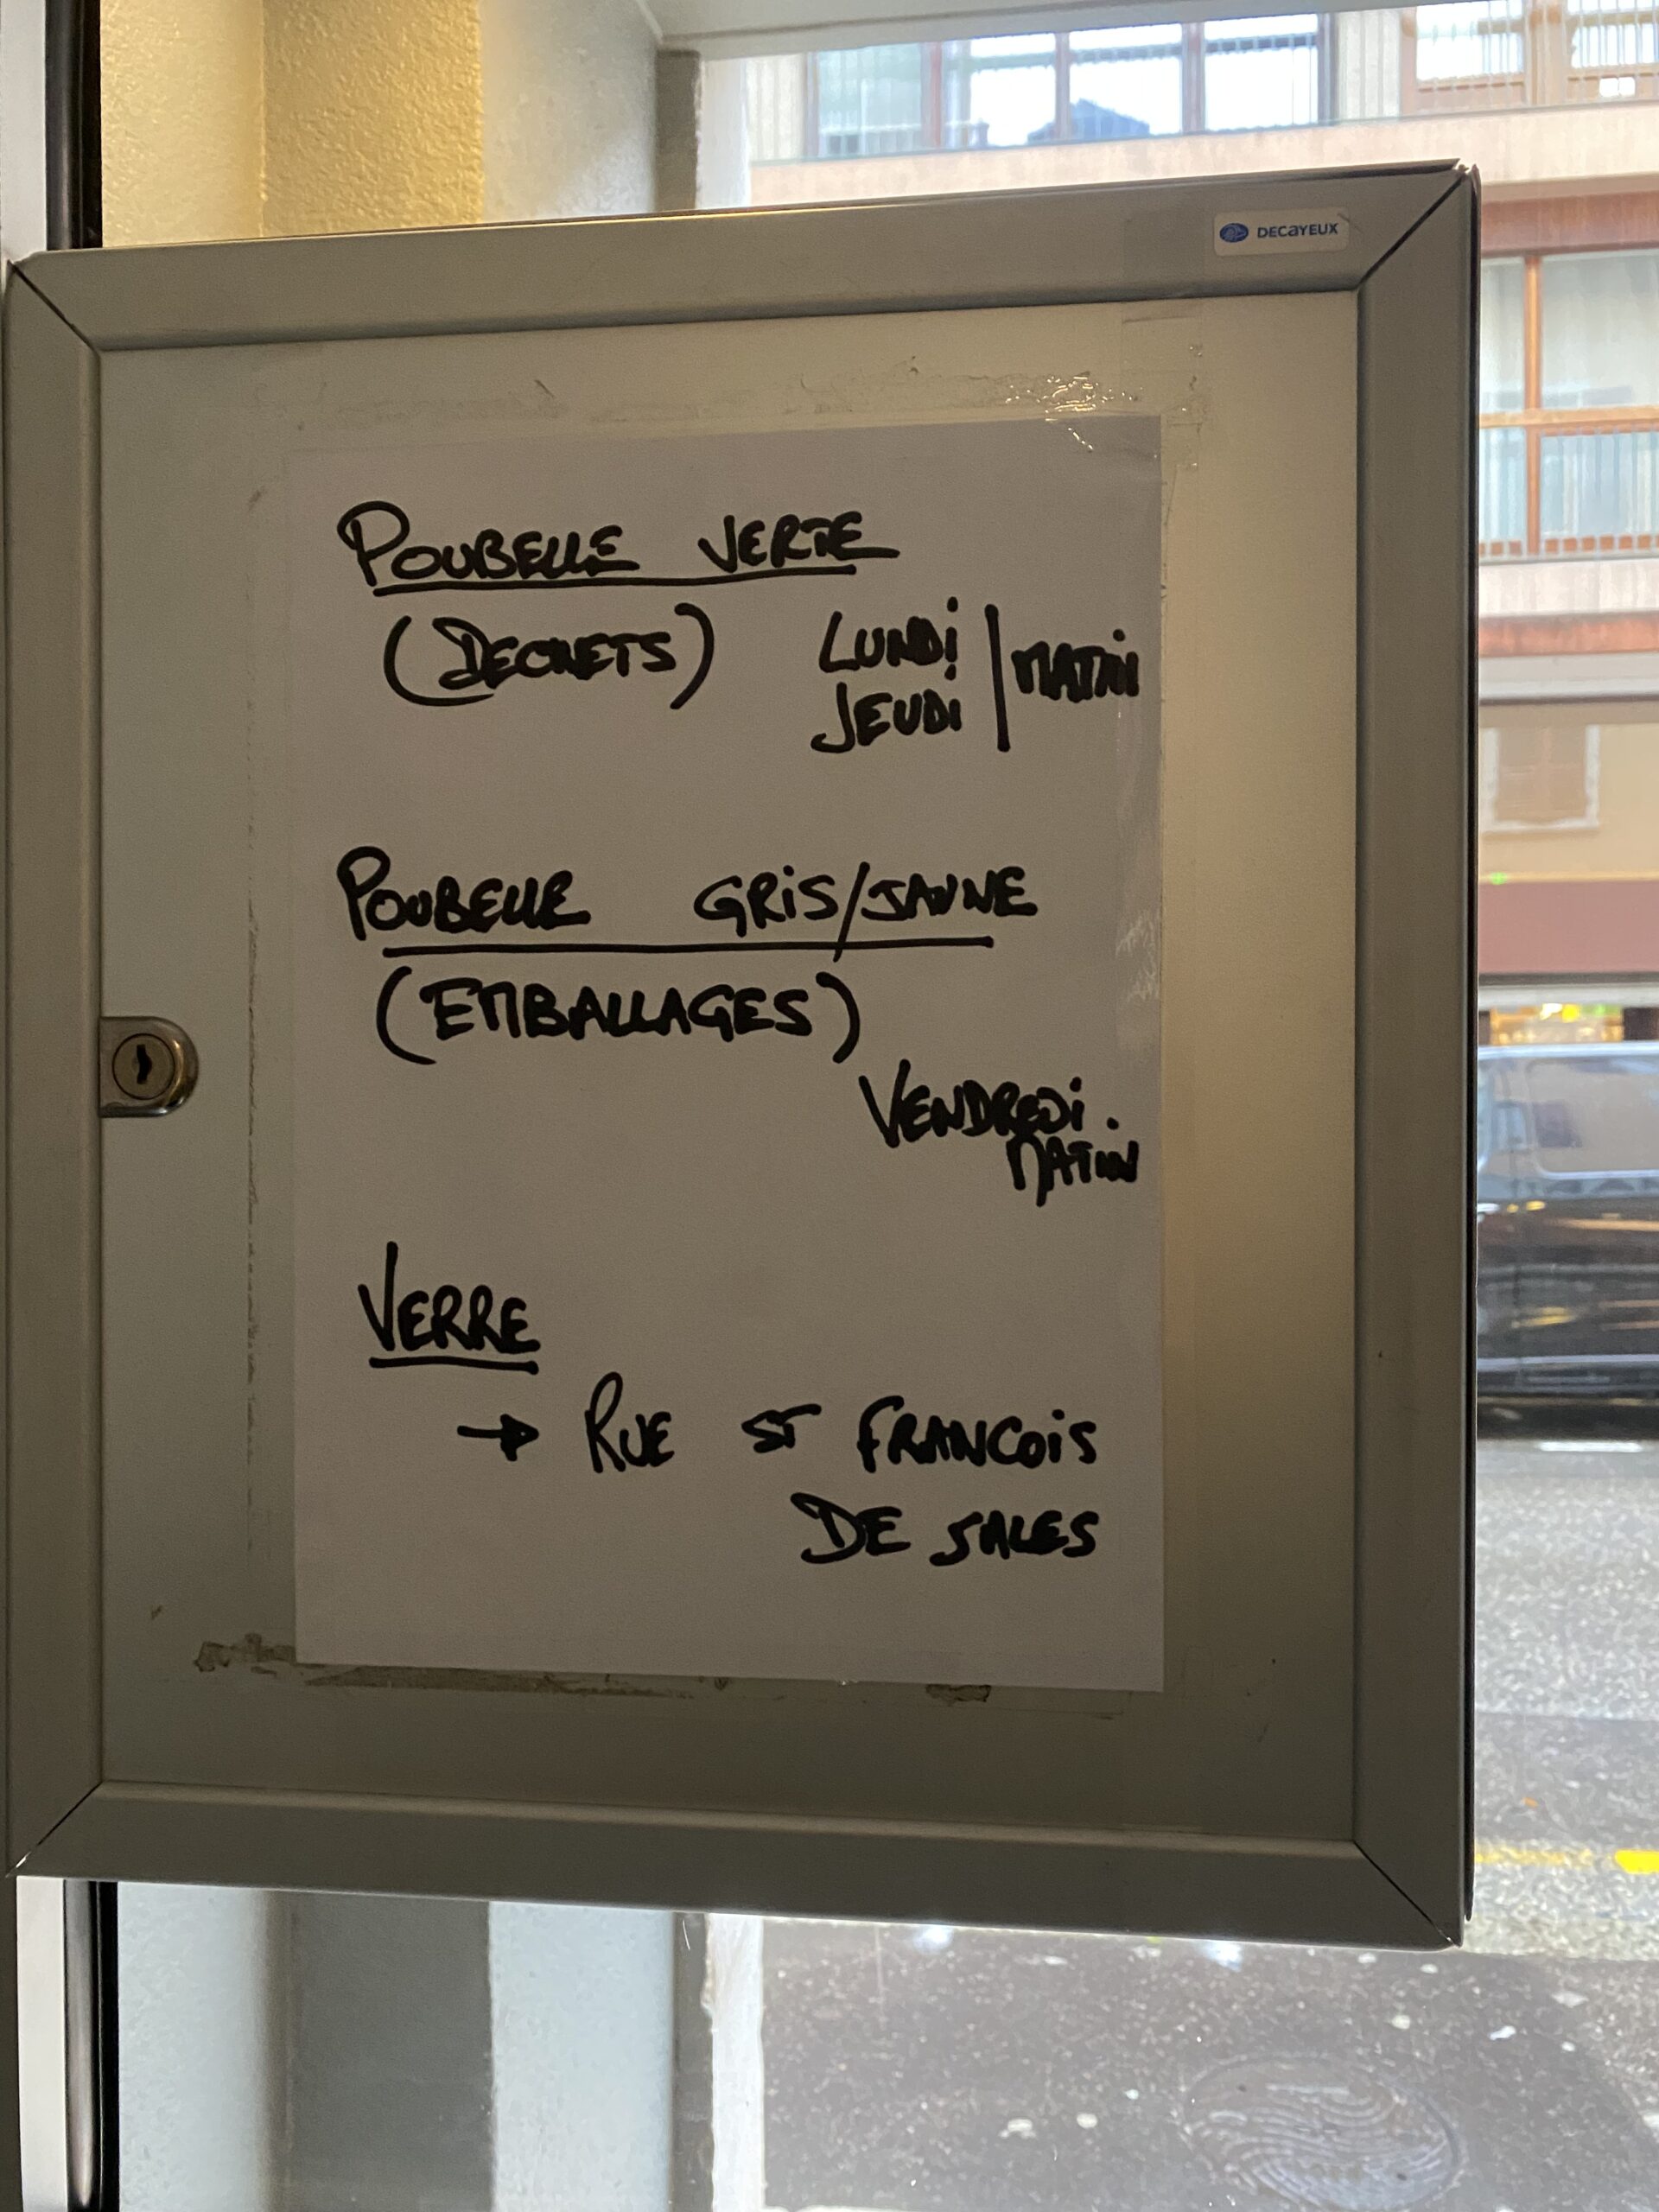 DECAYEUX
POUBELLE VERTE
(DECHETS) LUNDI
JEUDI | MATIN
POUBELLE GRIS/JAUNE
(EMBALLAGES)
VENDREDI.
MATIN
VERRE
→ RUE ST FRANCOIS
DE SALES